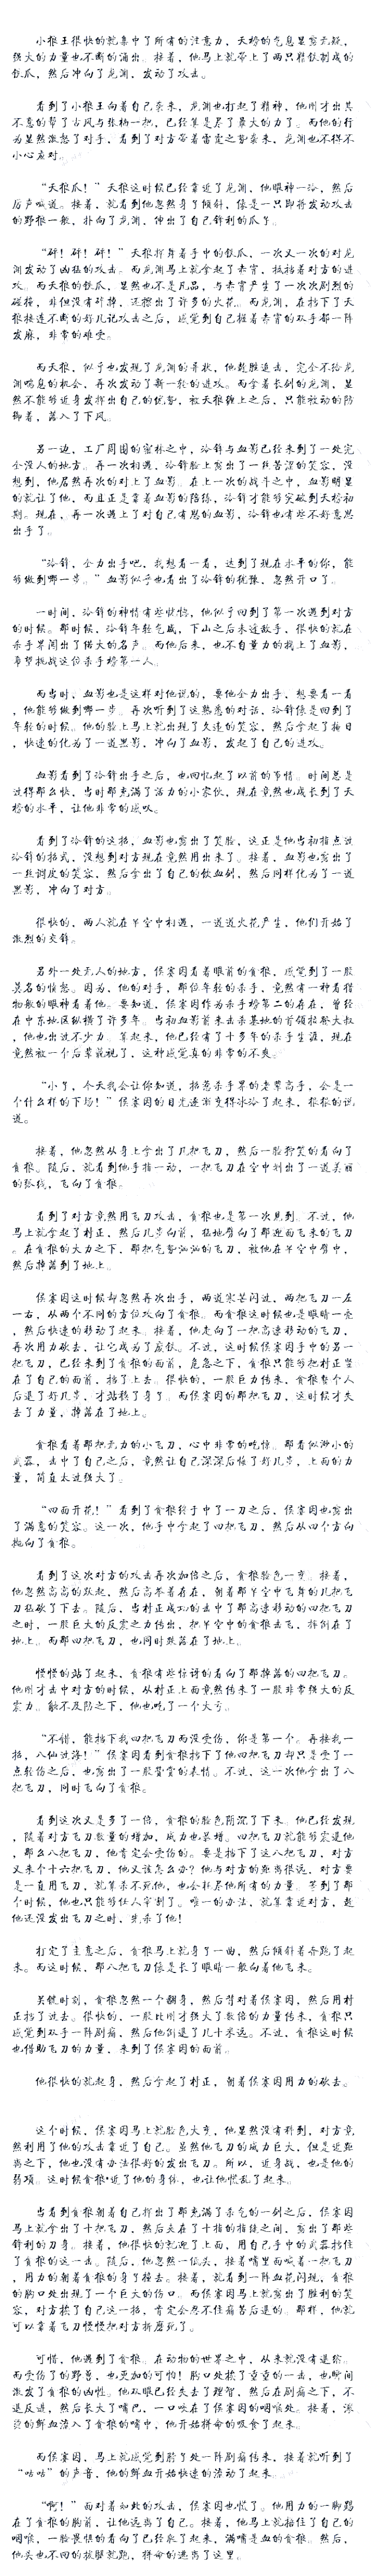 小狼王很快的就集中了所有的注意力，天榜的气息显露无疑，
强大的力量也不断的涌出。接着，他马上就带上了两只精铁制成的
铁爪，然后冲向了龙渊，发动了攻击。
看到了小狼王向着自己杀来，龙渊也打起了精神，他刚才出其
不意的帮了古风与张杨一把，已经算是尽了最大的力了。而他的行
为显然激怒了对手，看到了对方带着雷霆之势袭来，龙渊也不得不
小心应对。
“天狼爪！”天狼这时候已经靠近了龙渊，他眼神一冷，然后
厉声喊道。接着，就看到他忽然身子倾斜，像是一只即将发动攻击
的野狼一般，扑向了龙渊，伸出了自己锋利的爪子。
“砰！砰！砰！”天狼挥舞着手中的铁爪，一次又一次的对龙
渊发动了凶猛的攻击。而龙渊马上就拿起了赤霄，抵挡着对方的进
攻。而天狼的铁爪，显然也不是凡品，与赤霄产生了一次次剧烈的
碰撞，非但没有折掉，还擦出了许多的火花。而龙渊，在挡下了天
狼接连不断的好几记攻击之后，感觉到自己握着赤霄的双手都一阵
发麻，非常的难受。
而天狼，似乎也发现了龙渊的异状，他趁胜追击，完全不给龙
渊喘息的机会，再次发动了新一轮的进攻。而拿着长剑的龙渊，显
然不能够近身发挥出自己的优势，被天狼缠上之后，只能被动的防
御着，落入了下风。
另一边，工厂周围的密林之中，冷锋与血影已经来到了一处完
全没人的地方。再一次相遇，冷锋脸上露出了一丝苦涩的笑容，没
想到，他居然再次的对上了血影。在上一次的战斗之中，血影明显
的就让了他，而且正是靠着血影的陪练，冷锋才能够突破到天榜初
期。现在，再一次遇上了对自己有恩的血影，冷锋也有些不好意思
出手了。
“冷锋，全力出手吧，我想看一看，达到了现在水平的你，能
够做到哪一步。”血影似乎也看出了冷锋的犹豫，忽然开口了。
一时间，冷锋的神情有些恍惚，他似乎回到了第一次遇到对方
的时候。那时候，冷锋年轻气盛，下山之后未逢敌手，很快的就在
杀手界闯出了偌大的名声。而他后来，也不自量力的找上了血影，
希望挑战这位杀手榜第一人。
而当时，血影也是这样对他说的，要他全力出手，想要看一看
，他能够做到哪一步。再次听到了这熟悉的对话，冷锋像是回到了
年轻的时候。他的脸上马上就出现了久违的笑容，然后拿起了掩日
，快速的化为了一道黑影，冲向了血影，发起了自己的进攻。
血影看到了冷锋出手之后，也回忆起了以前的事情。时间总是
过得那么快，当时那充满了活力的小家伙，现在竟然也成长到了天
榜的水平，让他非常的感叹。
看到了冷锋的这招，血影也露出了笑脸，这正是他当初指点过
冷锋的招式，没想到对方现在竟然用出来了。接着，血影也露出了
一丝调皮的笑容，然后拿出了自己的饮血剑，然后同样化为了一道
黑影，冲向了对方。
很快的，两人就在半空中相遇，一道道火花产生，他们开始了
激烈的交锋。
另外一处无人的地方，侯赛因看着眼前的贪狼，感觉到了一股
莫名的愤怒。因为，他的对手，那位年轻的杀手，竟然有一种看猎
物般的眼神看着他。要知道，侯赛因作为杀手榜第二的存在，曾经
在中东地区纵横了许多年。当初血影前来击杀基地的首领拉登大叔
，他也出过不少力。算起来，他已经有了十多年的杀手生涯，现在
竟然被一个后辈藐视了，这种感觉真的非常的不爽。
“小子，今天我会让你知道，招惹杀手界的老辈高手，会是一
个什么样的下场！”侯赛因的目光逐渐变得冰冷了起来，狠狠的说
道。
接着，他忽然从身上拿出了几把飞刀，然后一脸狞笑的看向了
贪狼。随后，就看到他手指一动，一把飞刀在空中划出了一道美丽
的弧线，飞向了贪狼。
看到了对方竟然用飞刀攻击，贪狼也是第一次见到。不过，他
马上就拿起了村正，然后几步向前，猛地劈向了那迎面飞来的飞刀
。在贪狼的大力之下，那把气势汹汹的飞刀，被他在半空中劈中，
然后掉落到了地上。
侯赛因这时候却忽然再次出手，两道寒芒闪过，两把飞刀一左
一右，从两个不同的方位攻向了贪狼。而贪狼这时候也是眼睛一亮
，然后快速的移动了起来。接着，他走向了一把高速移动的飞刀，
再次用力砍去，让它成为了废铁。不过，这时候侯赛因手中的另一
把飞刀，已经来到了贪狼的面前，危急之下，贪狼只能够把村正竖
在了自己的面前，挡了上去。很快的，一股巨力传来，贪狼整个人
后退了好几步，才站稳了身子。而侯赛因的那把飞刀，这时候才失
去了力量，掉落在了地上。
贪狼看着那把无力的小飞刀，心中非常的吃惊。那看似渺小的
武器，击中了自己之后，竟然让自己深深后怪了好几步，上面的力
量，简直太过强大了。
“四面开花！”看到了贪狼终于中了一刀之后，侯赛因也露出
了满意的笑容。这一次，他手中拿起了四把飞刀，然后从四个方向
抛向了贪狼。
看到了这次对方的攻击再次加倍之后，贪狼脸色一变。接着，
他忽然高高的跃起，然后高举着右左，朝着那半空中飞舞的几把飞
刀猛砍了下去。随后，当村正成功的击中了那高速移动的四把飞刀
之时，一股巨大的反震之力传出，把半空中的贪狼击飞，摔倒在了
地上。而那四把飞刀，也同时跌落在了地上。
慢慢的站了起来，贪狼有些惊讶的看向了那掉落的四把飞刀。
他刚才击中对方的时候，从村正上面竟然传来了一股非常强大的反
震力。触不及防之下，他也吃了一个大亏。
“不错，能挡下我四把飞刀而没受伤，你是第一个。再接我一
招，八仙过海！”侯赛因看到贪狼挡下了他四把飞刀却只是受了一
点轻伤之后，也露出了一股赞赏的表情。不过，这一次他拿出了八
把飞刀，同时飞向了贪狼。
看到这次又是多了一倍，贪狼的脸色阴沉了下来。他已经发现
，随着对方飞刀数量的增加，威力也暴增。四把飞刀就能够震退他
，那么八把飞刀，他肯定会受伤的。要是挡下了这八把飞刀，对方
又来个十六把飞刀，他又该怎么办？他与对方的距离很远，对方要
是一直用飞刀，就算杀不死他，也会耗尽他所有的力量。等到了那
个时候，他也只能够任人宰割了。唯一的办法，就算靠近对方，趁
他还没发出飞刀之时，先杀了他！
打定了主意之后，贪狼马上就身子一曲，然后倾斜着奔跑了起
来。而这时候，那八把飞刀像是长了眼睛一般向着他飞来。
关键时刻，贪狼忽然一个翻身，然后背对着侯赛因，然后用村
正挡了过去。很快的，一股比刚才强大了数倍的力量传来，贪狼只
感觉到双手一阵剧痛，然后他倒退了几十米远。不过，贪狼这时候
也借助飞刀的力量，来到了侯赛因的面前。
他很快的就起身，然后拿起了村正，朝着侯赛因用力的砍去。
这个时候，侯赛因马上就脸色大变，他显然没有料到，对方竟
然利用了他的攻击靠近了自己。虽然他飞刀的威力巨大，但是近距
离之下，他也没有办法很好的发出飞刀。所以，近身战，也是他的
弱项。这时候贪狼靠近了他的身体，也让他慌乱了起来。
当看到贪狼朝着自己挥出了那充满了杀气的一剑之后，侯赛因
马上就拿出了十把飞刀，然后夹在了十指的指缝之间，露出了那些
锋利的刀身。接着，他很快的就迎了上面，用自己手中的武器挡住
了贪狼的这一击。随后，他忽然一低头，接着嘴里面喊着一把飞刀
，用力的朝着贪狼的身子撞去。接着，就看到一阵血花闪现，贪狼
的胸口处出现了一个巨大的伤口。而侯赛因马上就露出了胜利的笑
容，对方挨了自己这一招，肯定会忍不住痛苦后退的。那样，他就
可以靠着飞刀慢慢把对方折磨死了。
可惜，他遇到了贪狼。在动物的世界之中，从来就没有退缩。
而受伤了的野兽，也更加的可怕！胸口处挨了重重的一击，也瞬间
激发了贪狼的凶性。他双眼已经失去了理智，然后在剧痛之下，不
退反进，然后长大了嘴巴，一口咬在了侯赛因的咽喉处。接着，滚
烫的鲜血流入了贪狼的嘴中，他开始拼命的吸食了起来。
而侯赛因，马上就感觉到脖子处一阵剧痛传来，接着就听到了
“咕咕”的声音，他的鲜血开始快速的流动了起来。
“啊！”面对着如此的攻击，侯赛因也慌了。他用力的一脚踢
在了贪狼的胸前，让他远离了自己。接着，他马上就捂住了自己的
咽喉，一脸畏惧的看向了已经爬了起来，满嘴是血的贪狼。然后，
他头也不回的拔腿就跑，拼命的逃离了这里。